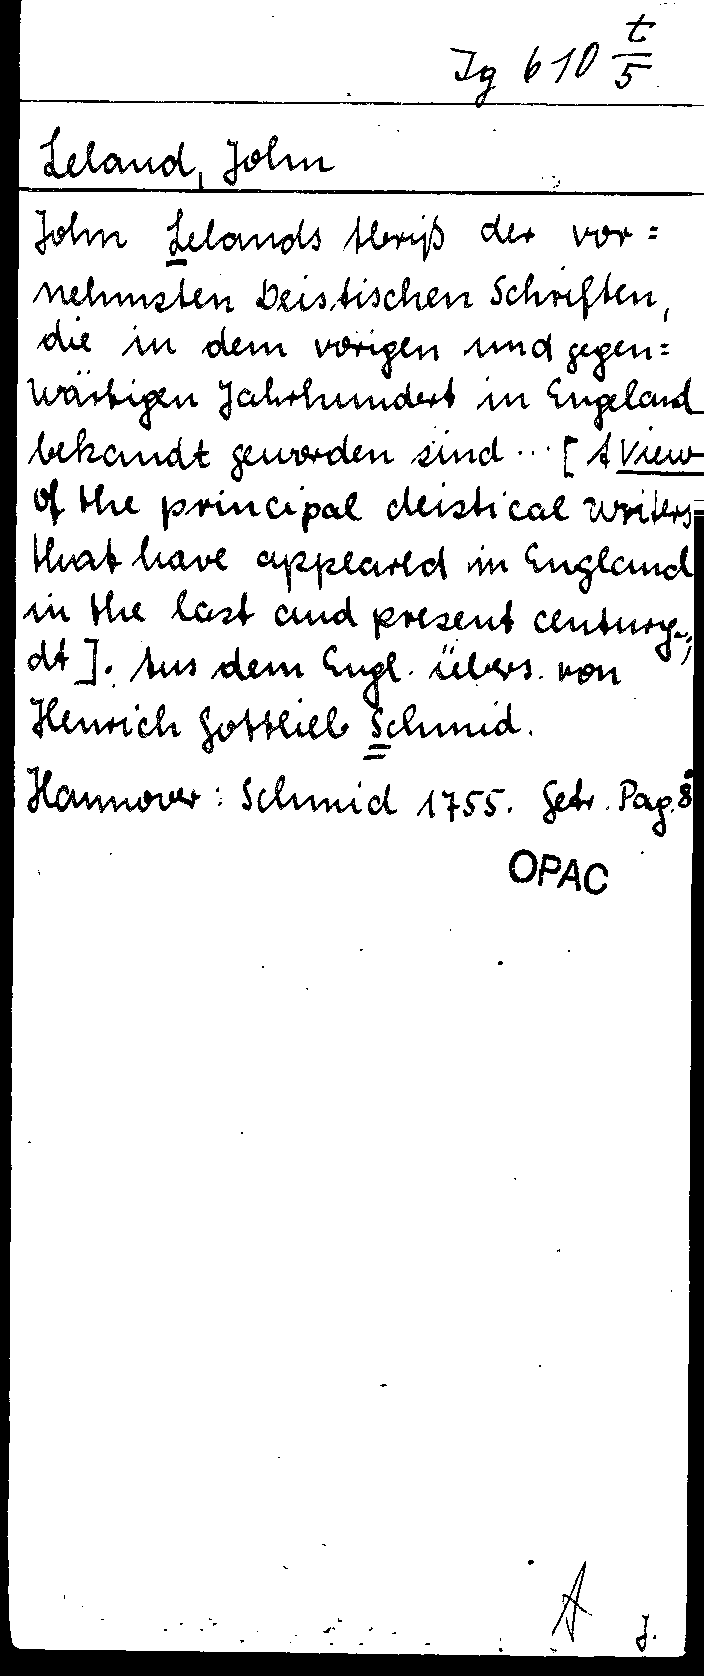 Ig 610 t/5
Leland, John
John Lelands Abriß der vor=
nehmsten Deistischen Schriften,
die in dem vorigen und gegen=
wärtigen Jahrhundert in Engeland
bekandt geworden sind ... [A View
of the principal deistical writers
that have appeared in England
in the last and present century,
dt]. Aus dem Engl. übers. von
Henrich Gottlieb Schmid.
Hannover: Schmid 1755. Getr. Pag. 8°
OPAC
A J.